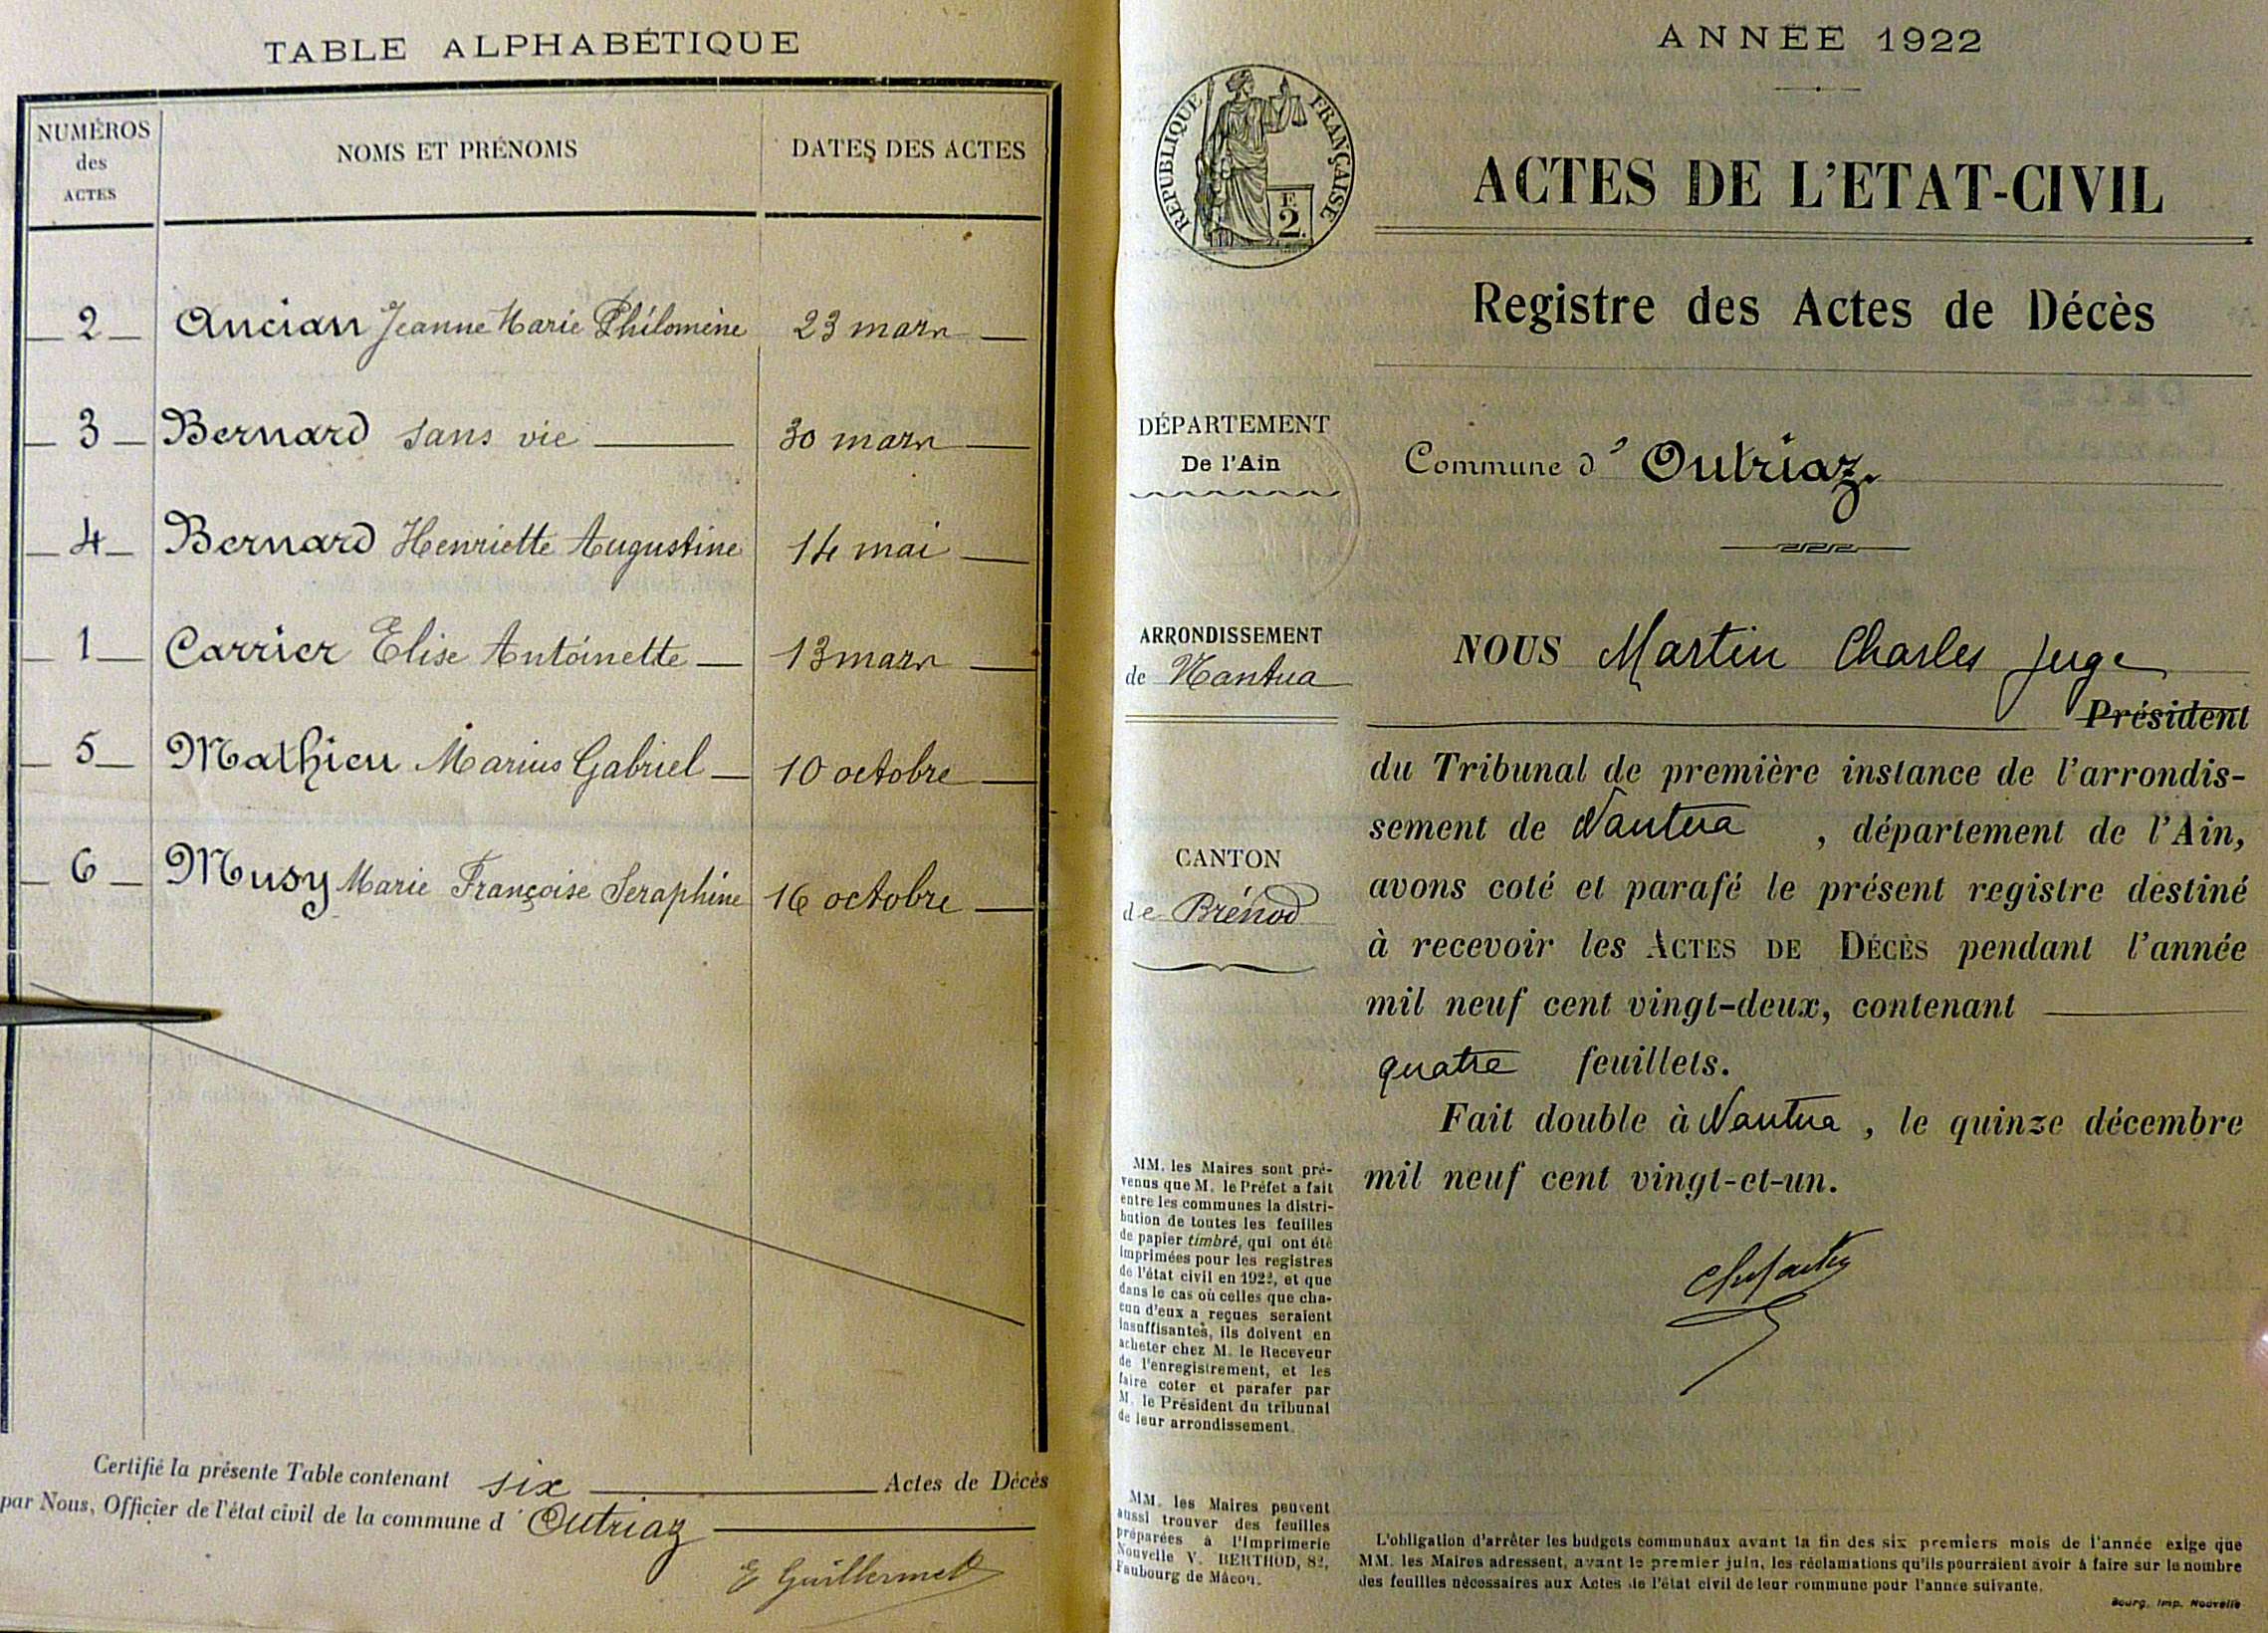 TABLE ALPHABÉTIQUE
NUMÉROS
des
ACTES
NOMS ET PRÉNOMS
DATES DES ACTES
2 Ancian Jeanne Marie Philomène 23 mars
3 Bernard sans vie 30 mars
4 Bernard Henriette Augustine 14 mai
1 Carrier Elise Antoinette 13 mars
5 Mathieu Marius Gabriel 10 octobre
6 Musy Marie Françoise Seraphine 16 octobre
Certifié la présente Table contenant six Actes de Décès
par Nous, Officier de l'état civil de la commune d'Outriaz
E Guillermet
ANNÉE 1922
RÉPUBLIQUE FRANÇAISE
F.
2.
ACTES DE L'ETAT-CIVIL
Registre des Actes de Décès
DÉPARTEMENT
De l'Ain
Commune d'Outriaz.
ARRONDISSEMENT
de Nantua
CANTON
de Brénod
NOUS Martin Charles juge
Président
du Tribunal de première instance de l'arrondis-
sement de Nantua, département de l'Ain,
avons coté et parafé le présent registre destiné
à recevoir les ACTES DE DÉCÈS pendant l'année
mil neuf cent vingt-deux, contenant
quatre feuillets.
Fait double à Nantua, le quinze décembre
mil neuf cent vingt-et-un.
MM. les Maires sont pré-
venus que M. le Préfet a fait
entre les communes la distri-
bution de toutes les feuilles
de papier timbré, qui ont été
imprimées pour les registres
de l'état civil en 1922, et que
dans le cas où celles que cha-
cun d'eux a reçues seraient
insuffisantes, ils doivent en
acheter chez M. le Receveur
de l'enregistrement, et les
faire coter et parafer par
M. le Président du tribunal
de leur arrondissement.
MM. les Maires peuvent
aussi trouver des feuilles
préparées à l'Imprimerie
Nouvelle V. BERTHOD, 82,
Faubourg de Mâcon.
L'obligation d'arrêter les budgets communaux avant la fin des six premiers mois de l'année exige que
MM. les Maires adressent, avant le premier juin, les réclamations qu'ils pourraient avoir à faire sur le nombre
des feuilles nécessaires aux Actes de l'état civil de leur commune pour l'année suivante.
Bourg, Imp. Nouvelle